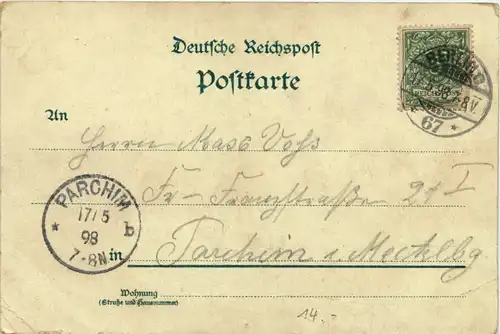 Deutsche Reichspost
Postkarte
BERLIN
67 *
An
Herrn Maas Voss
Fr.-Franzstraßen 21 I
PARCHIM
17/5
98
* b
7-8N
in Parchim i Mecklbg.
Wohnung
(Straße und Hausnummer)
14.-